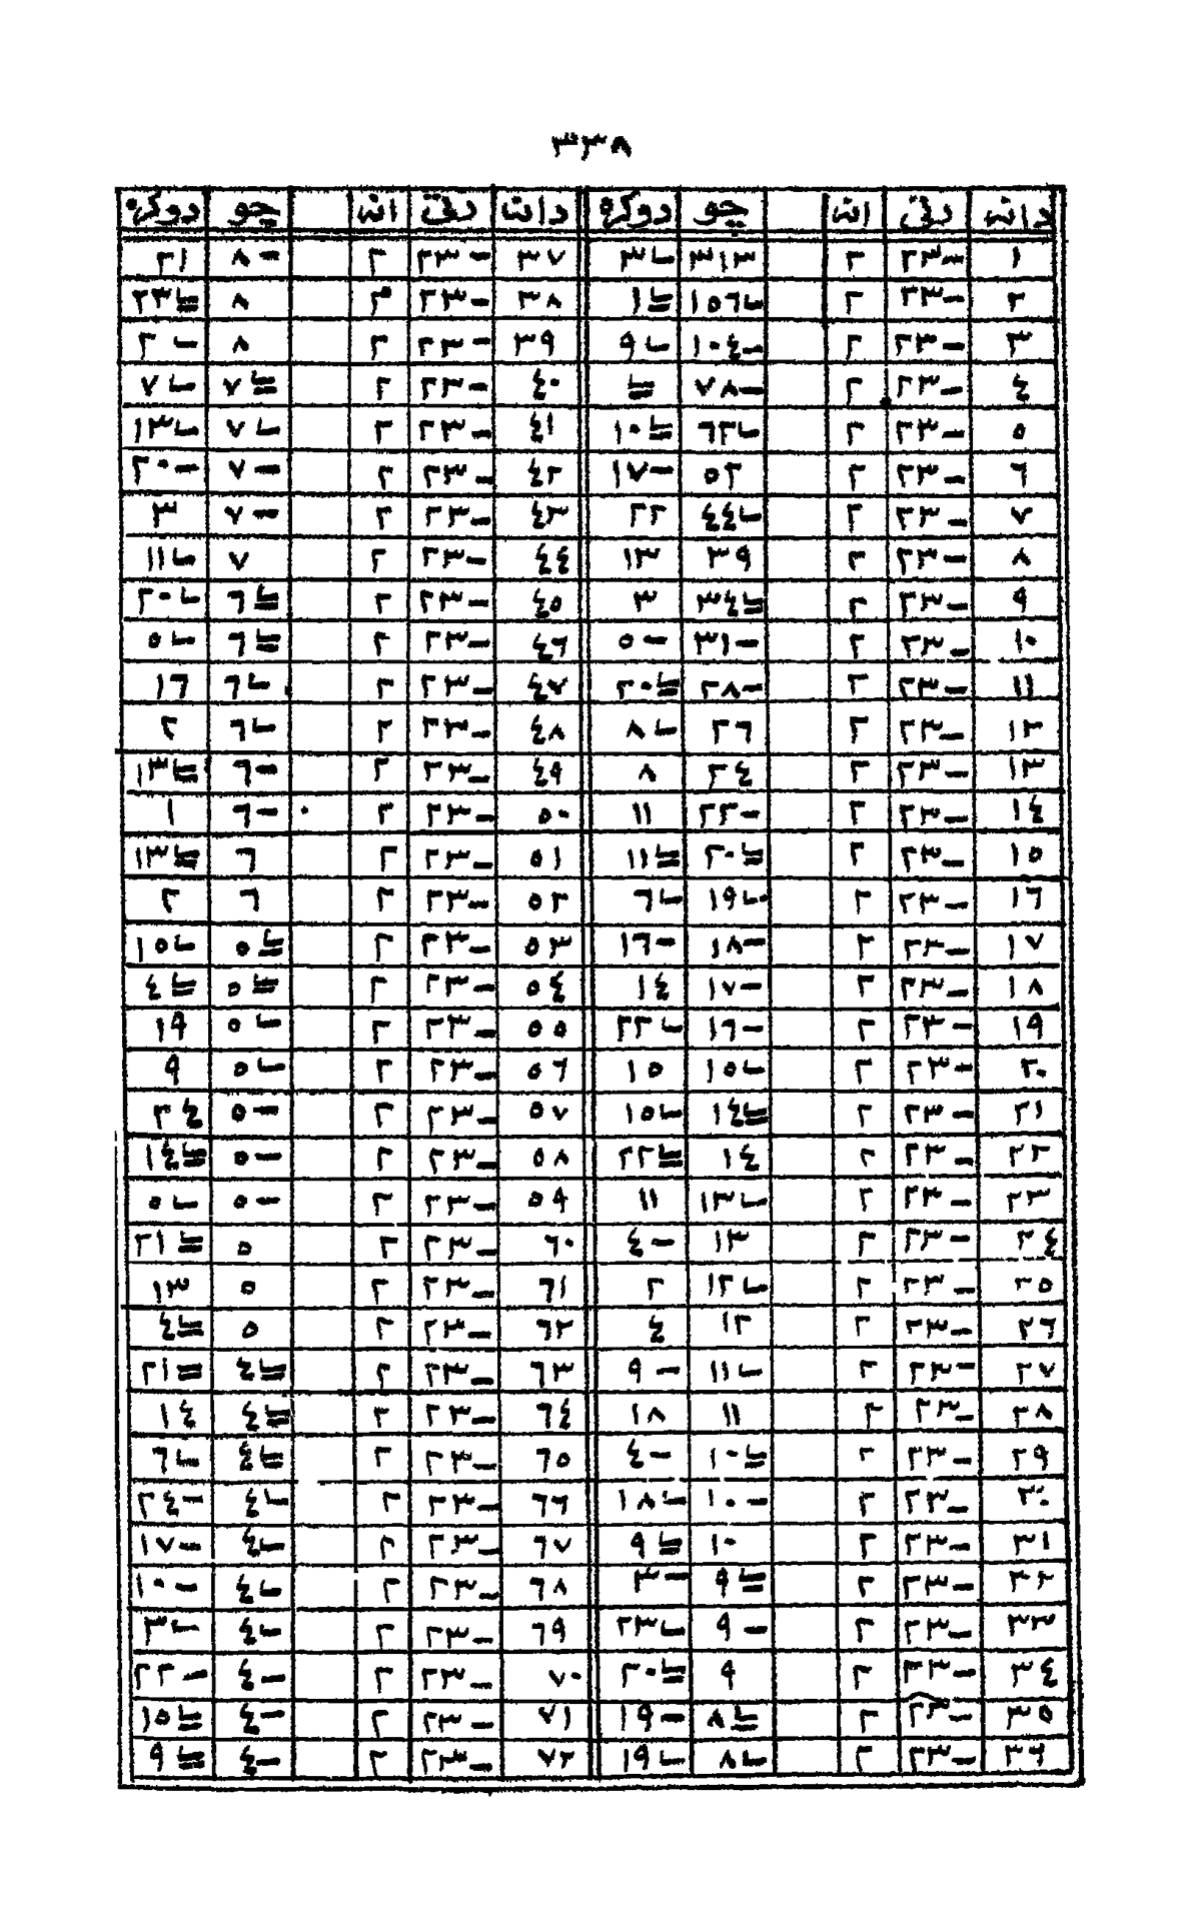 ٣٣٨
دانه رتي انه چو دوكره دانه رتي انه چو دوكره
١ ٢٣- ٢ ٣١٣ ٣ ٣٧ ٢٣- ٢ ٨- ٢١
٢ ٢٣- ٢ ١٥٦ ١ ٣٨ ٢٣- ٢ ٨ ٢٣
٣ ٢٣- ٢ ١٠٤- ٩ ٣٩ ٢٣- ٢ ٨ ٢
٤ ٢٣- ٢ ٧٨- ٤٠ ٢٣- ٢ ٧ ٧
٥ ٢٣- ٢ ٦٢ ١٠ ٤١ ٢٣- ٢ ٧ ١٣
٦ ٢٣- ٢ ٥٢ ١٧- ٤٢ ٢٣- ٢ ٧- ٢٠-
٧ ٢٣- ٢ ٤٤ ٢٢ ٤٣ ٢٣- ٢ ٧- ٣
٨ ٢٣- ٢ ٣٩ ١٣ ٤٤ ٢٣- ٢ ٧ ١١
٩ ٢٣- ٢ ٣٤ ٣ ٤٥ ٢٣- ٢ ٦ ٢٠
١٠ ٢٣- ٢ ٣١- ٥- ٤٦ ٢٣- ٢ ٦ ٥
١١ ٢٣- ٢ ٢٨- ٢٠ ٤٧ ٢٣- ٢ ٦ ١٦
١٢ ٢٣- ٢ ٢٦ ٨ ٤٨ ٢٣- ٢ ٦ ٢
١٣ ٢٣- ٢ ٢٤ ٨ ٤٩ ٢٣- ٢ ٦- ١٣
١٤ ٢٣- ٢ ٢٢- ١١ ٥٠ ٢٣- ٢ ٦- ١
١٥ ٢٣- ٢ ٢٠ ١١ ٥١ ٢٣- ٢ ٦ ١٣
١٦ ٢٣- ٢ ١٩ ٦ ٥٢ ٢٣- ٢ ٦ ٢
١٧ ٢٣- ٢ ١٨- ١٦- ٥٣ ٢٣- ٢ ٥ ١٥
١٨ ٢٣- ٢ ١٧- ١٤ ٥٤ ٢٣- ٢ ٥ ٤
١٩ ٢٣- ٢ ١٦- ٢٢ ٥٥ ٢٣- ٢ ٥ ١٩
٢٠ ٢٣- ٢ ١٥ ١٥ ٥٦ ٢٣- ٢ ٥ ٩
٢١ ٢٣- ٢ ١٤ ١٥ ٥٧ ٢٣- ٢ ٥- ٢٤
٢٢ ٢٣- ٢ ١٤ ٢٢ ٥٨ ٢٣- ٢ ٥- ١٤
٢٣ ٢٣- ٢ ١٣ ١١ ٥٩ ٢٣- ٢ ٥- ٥
٢٤ ٢٣- ٢ ١٣ ٤- ٦٠ ٢٣- ٢ ٥ ٢١
٢٥ ٢٣- ٢ ١٢ ٢ ٦١ ٢٣- ٢ ٥ ١٣
٢٦ ٢٣- ٢ ١٢ ٤ ٦٢ ٢٣- ٢ ٥ ٤
٢٧ ٢٣- ٢ ١١ ٩- ٦٣ ٢٣- ٢ ٤ ٢١
٢٨ ٢٣- ٢ ١١ ١٨ ٦٤ ٢٣- ٢ ٤ ١٤
٢٩ ٢٣- ٢ ١٠ ٤- ٦٥ ٢٣- ٢ ٤ ٦
٣٠ ٢٣- ٢ ١٠- ١٨ ٦٦ ٢٣- ٢ ٤ ٢٤-
٣١ ٢٣- ٢ ١٠ ٩ ٦٧ ٢٣- ٢ ٤ ١٧-
٣٢ ٢٣- ٢ ٩ ٣- ٦٨ ٢٣- ٢ ٤ ١٠-
٣٣ ٢٣- ٢ ٩- ٢٣ ٦٩ ٢٣- ٢ ٤ ٣
٣٤ ٢٣- ٢ ٩ ٢٠ ٧٠ ٢٣- ٢ ٤- ٢٢-
٣٥ ٢٣- ٢ ٨ ١٩- ٧١ ٢٣- ٢ ٤- ١٥
٣٦ ٢٣- ٢ ٨ ١٩ ٧٢ ٢٣- ٢ ٤- ٩